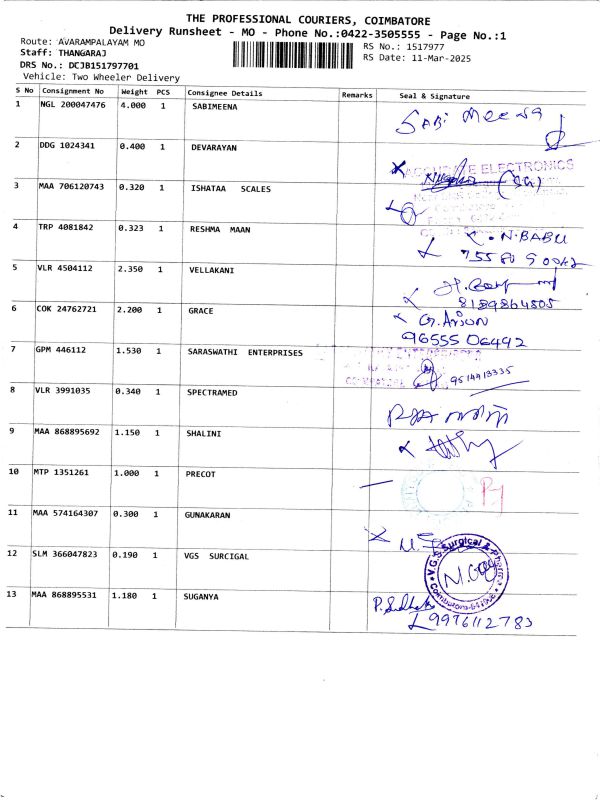 THE PROFESSIONAL COURIERS, COIMBATORE
Delivery Runsheet - MO - Phone No.:0422-3505555 - Page No.:1
Route: AVARAMPALAYAM MO
RS No.: 1517977
Staff: THANGARAJ
RS Date: 11-Mar-2025
DRS No.: DCJB151797701
Vehicle: Two Wheeler Delivery
S No Consignment No Weight PCS Consignee Details Remarks Seal & Signature
1 NGL 200047476 4.000 1 SABIMEENA
SABI MEENA
2 DDG 1024341 0.400 1 DEVARAYAN
ELECTRONICS
3 MAA 706120743 0.320 1 ISHATAA SCALES
4 TRP 4081842 0.323 1 RESHMA MAAN
N.BABU
5 VLR 4504112 2.350 1 VELLAKANI
8189864505
6 COK 24762721 2.200 1 GRACE
G.Arjun
96555 06492
7 GPM 446112 1.530 1 SARASWATHI ENTERPRISES
9514413335
8 VLR 3991035 0.340 1 SPECTRAMED
9 MAA 868895692 1.150 1 SHALINI
10 MTP 1351261 1.000 1 PRECOT
11 MAA 574164307 0.300 1 GUNAKARAN
12 SLM 366047823 0.190 1 VGS SURCIGAL
V.G.S Surgical & Pharma
13 MAA 868895531 1.180 1 SUGANYA
9976112783